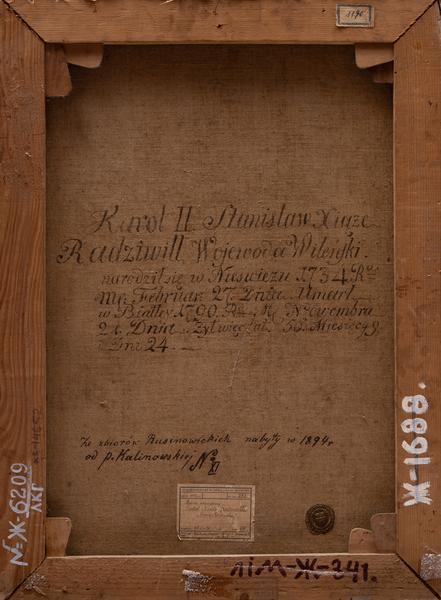 1196
Karol II Stanisław Xiąze
Radziwill Wojewoda Wilenski.
narodził się w Nuswiezu 1734 Ru
mp. Februar. 27. Dnia. Umarł
w Białley 1790. Ru. M. Nowembra
21. Dnia. Zył więc lat 56. Miesięcy 9.
i Dni 24.
Ze zbiorów Rusinowickich nabyty w 1894 r
od p. Kalinowskiej № XI
№-Ж-6209
ЛКГ
Ж-1688.
ЛіМ-Ж-341.